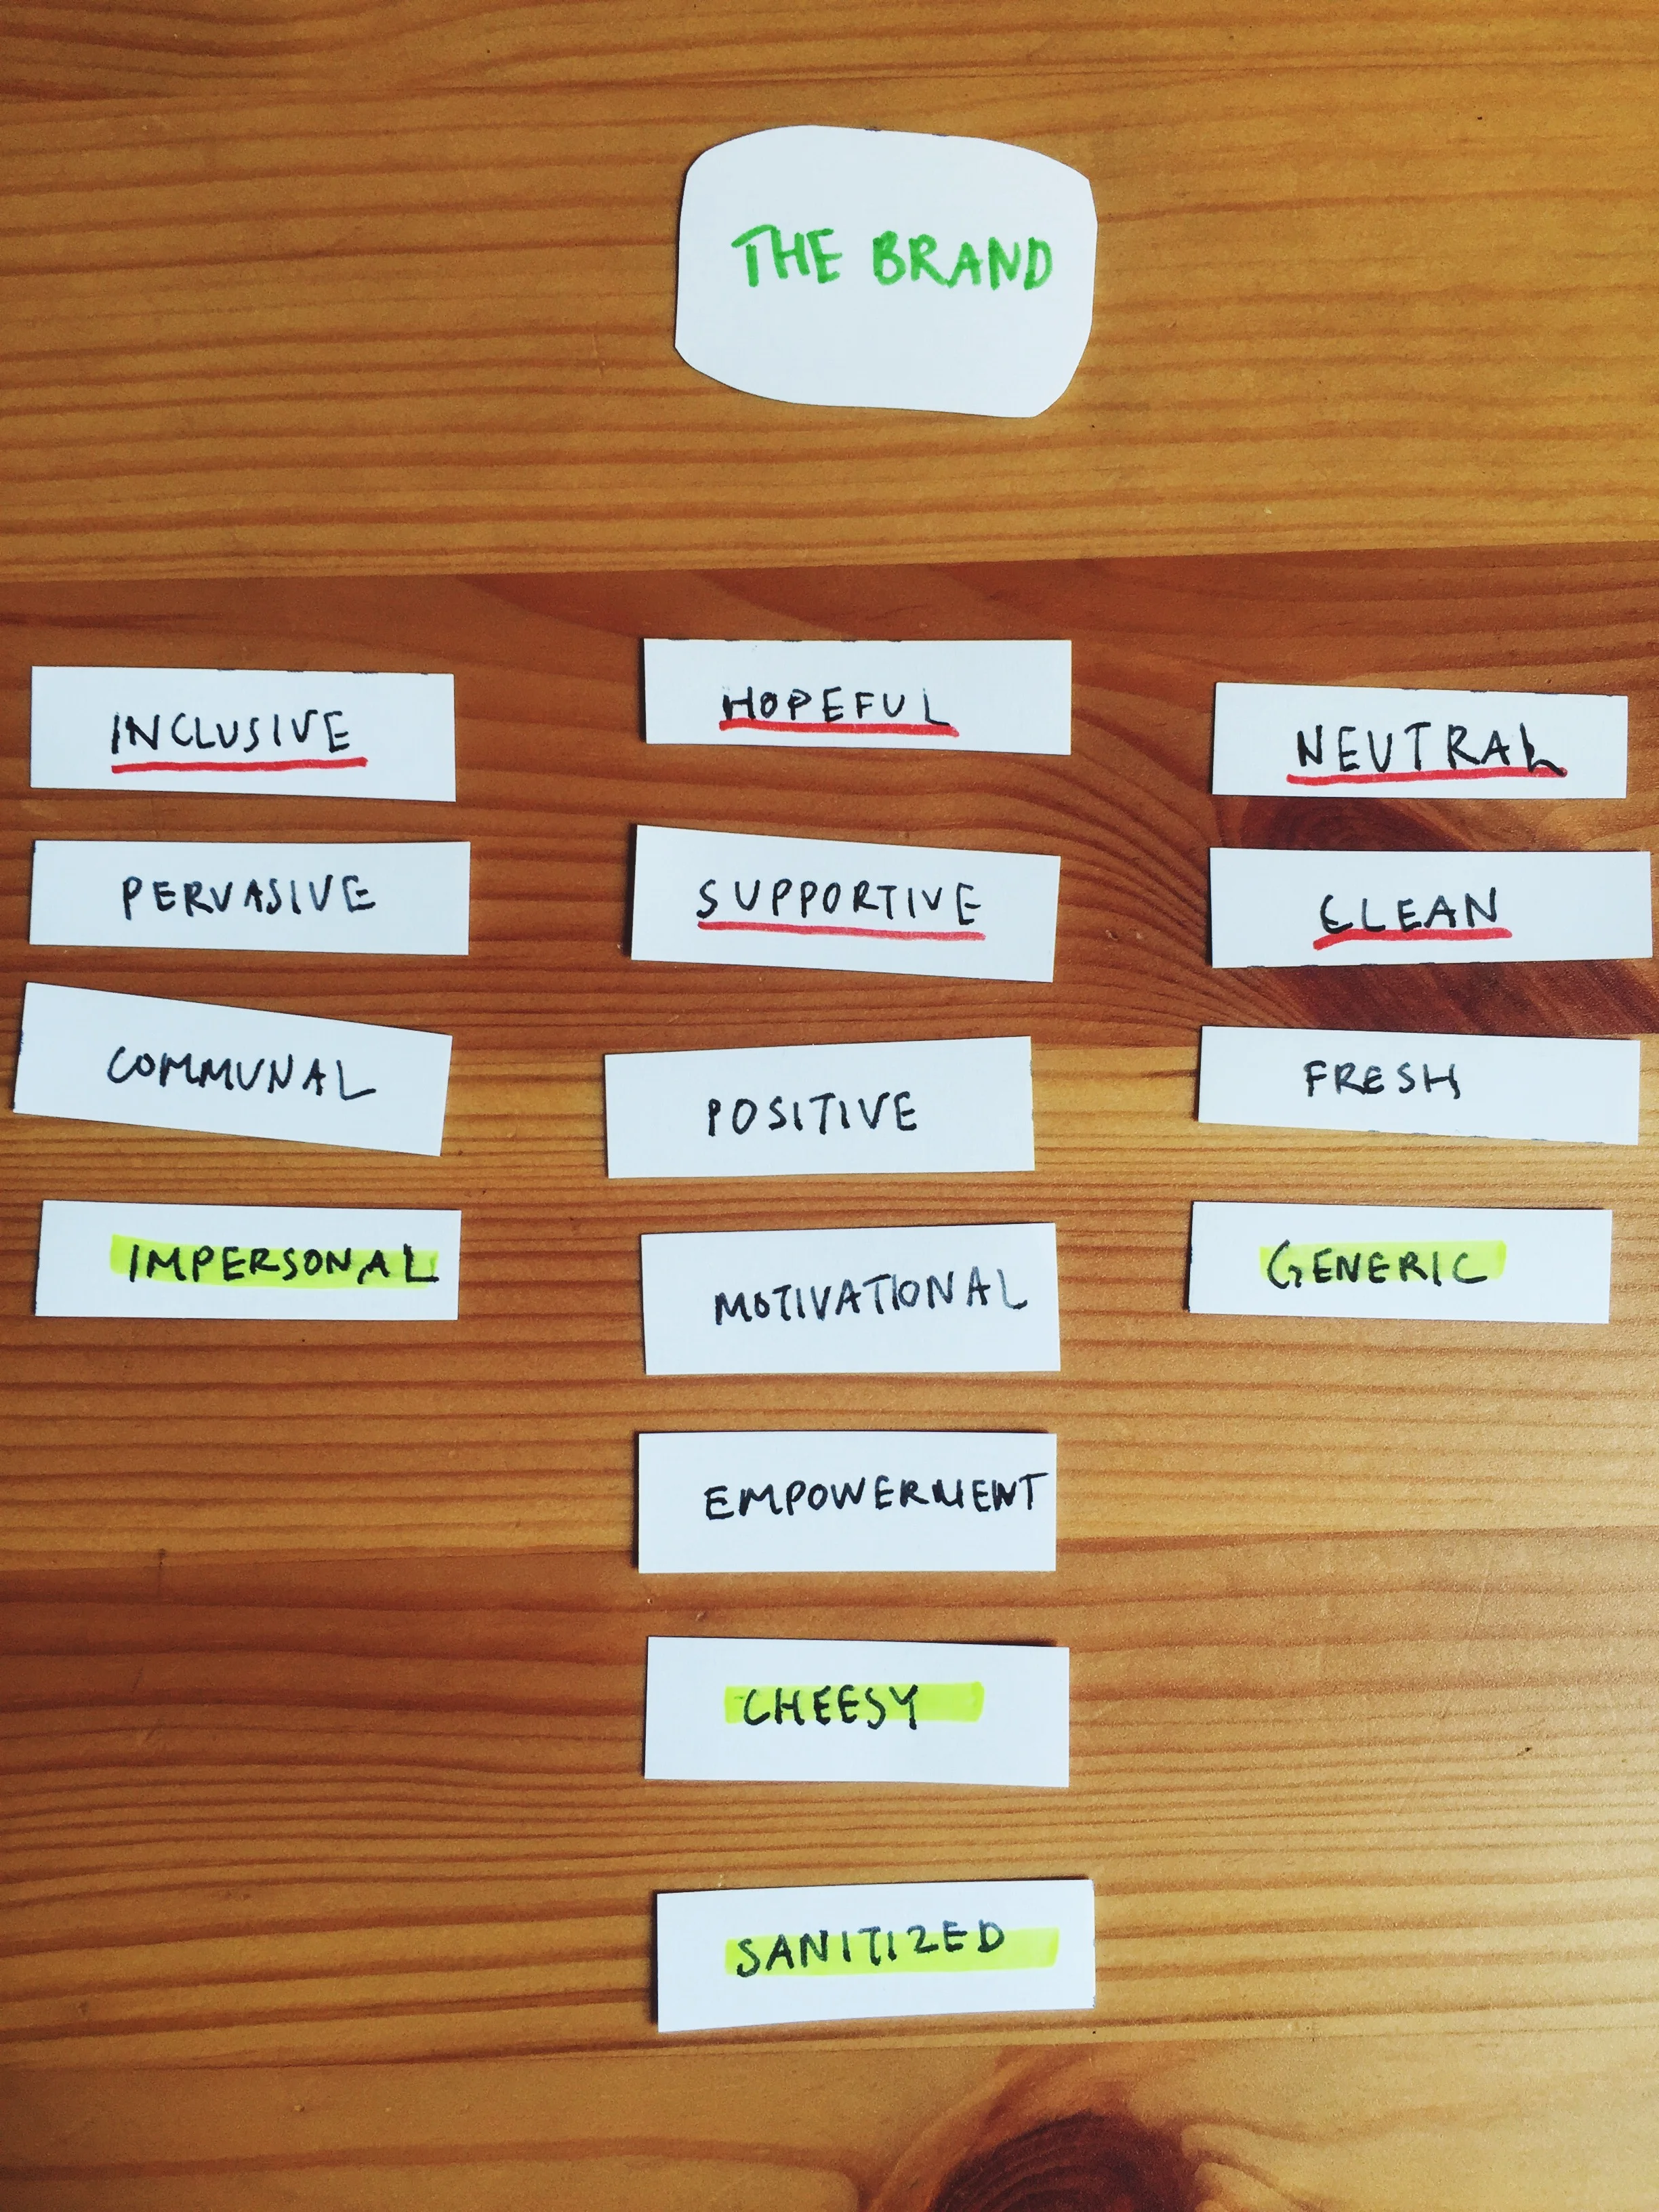 THE BRAND
INCLUSIVE
PERVASIVE
COMMUNAL
IMPERSONAL
HOPEFUL
SUPPORTIVE
POSITIVE
MOTIVATIONAL
EMPOWERMENT
CHEESY
SANITIZED
NEUTRAL
CLEAN
FRESH
GENERIC